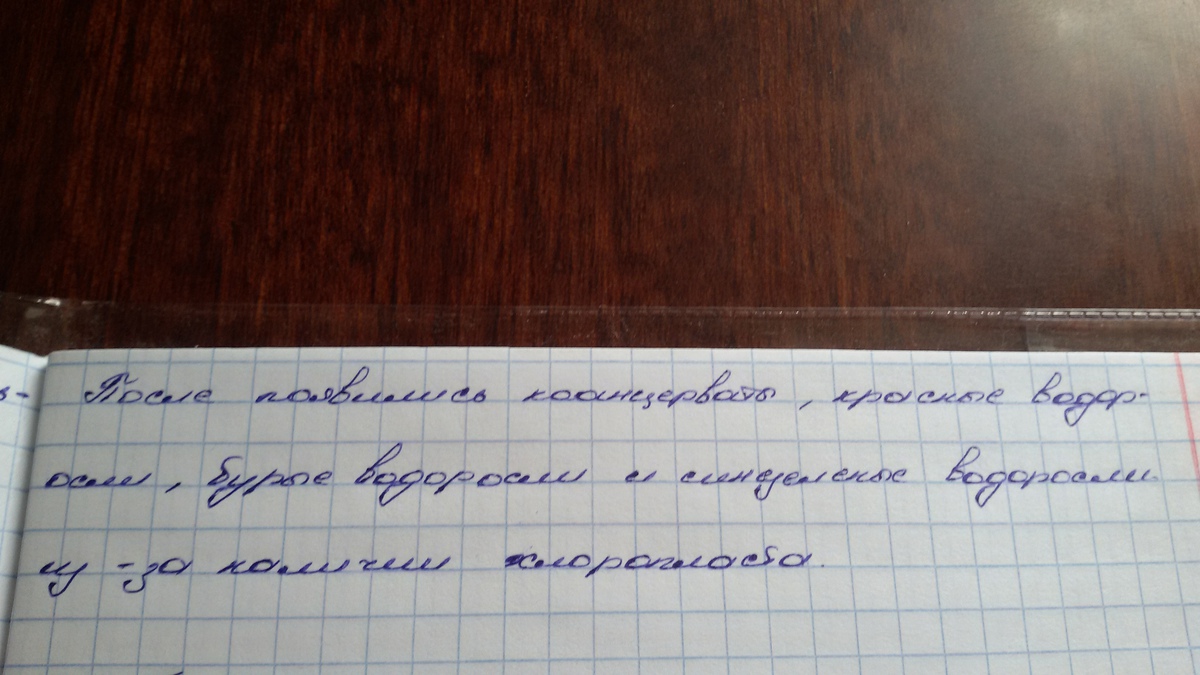 После появились коанцерваты, красные водор-
осли, бурые водоросли и синезеленые водоросли
из-за наличии хлоропласта.